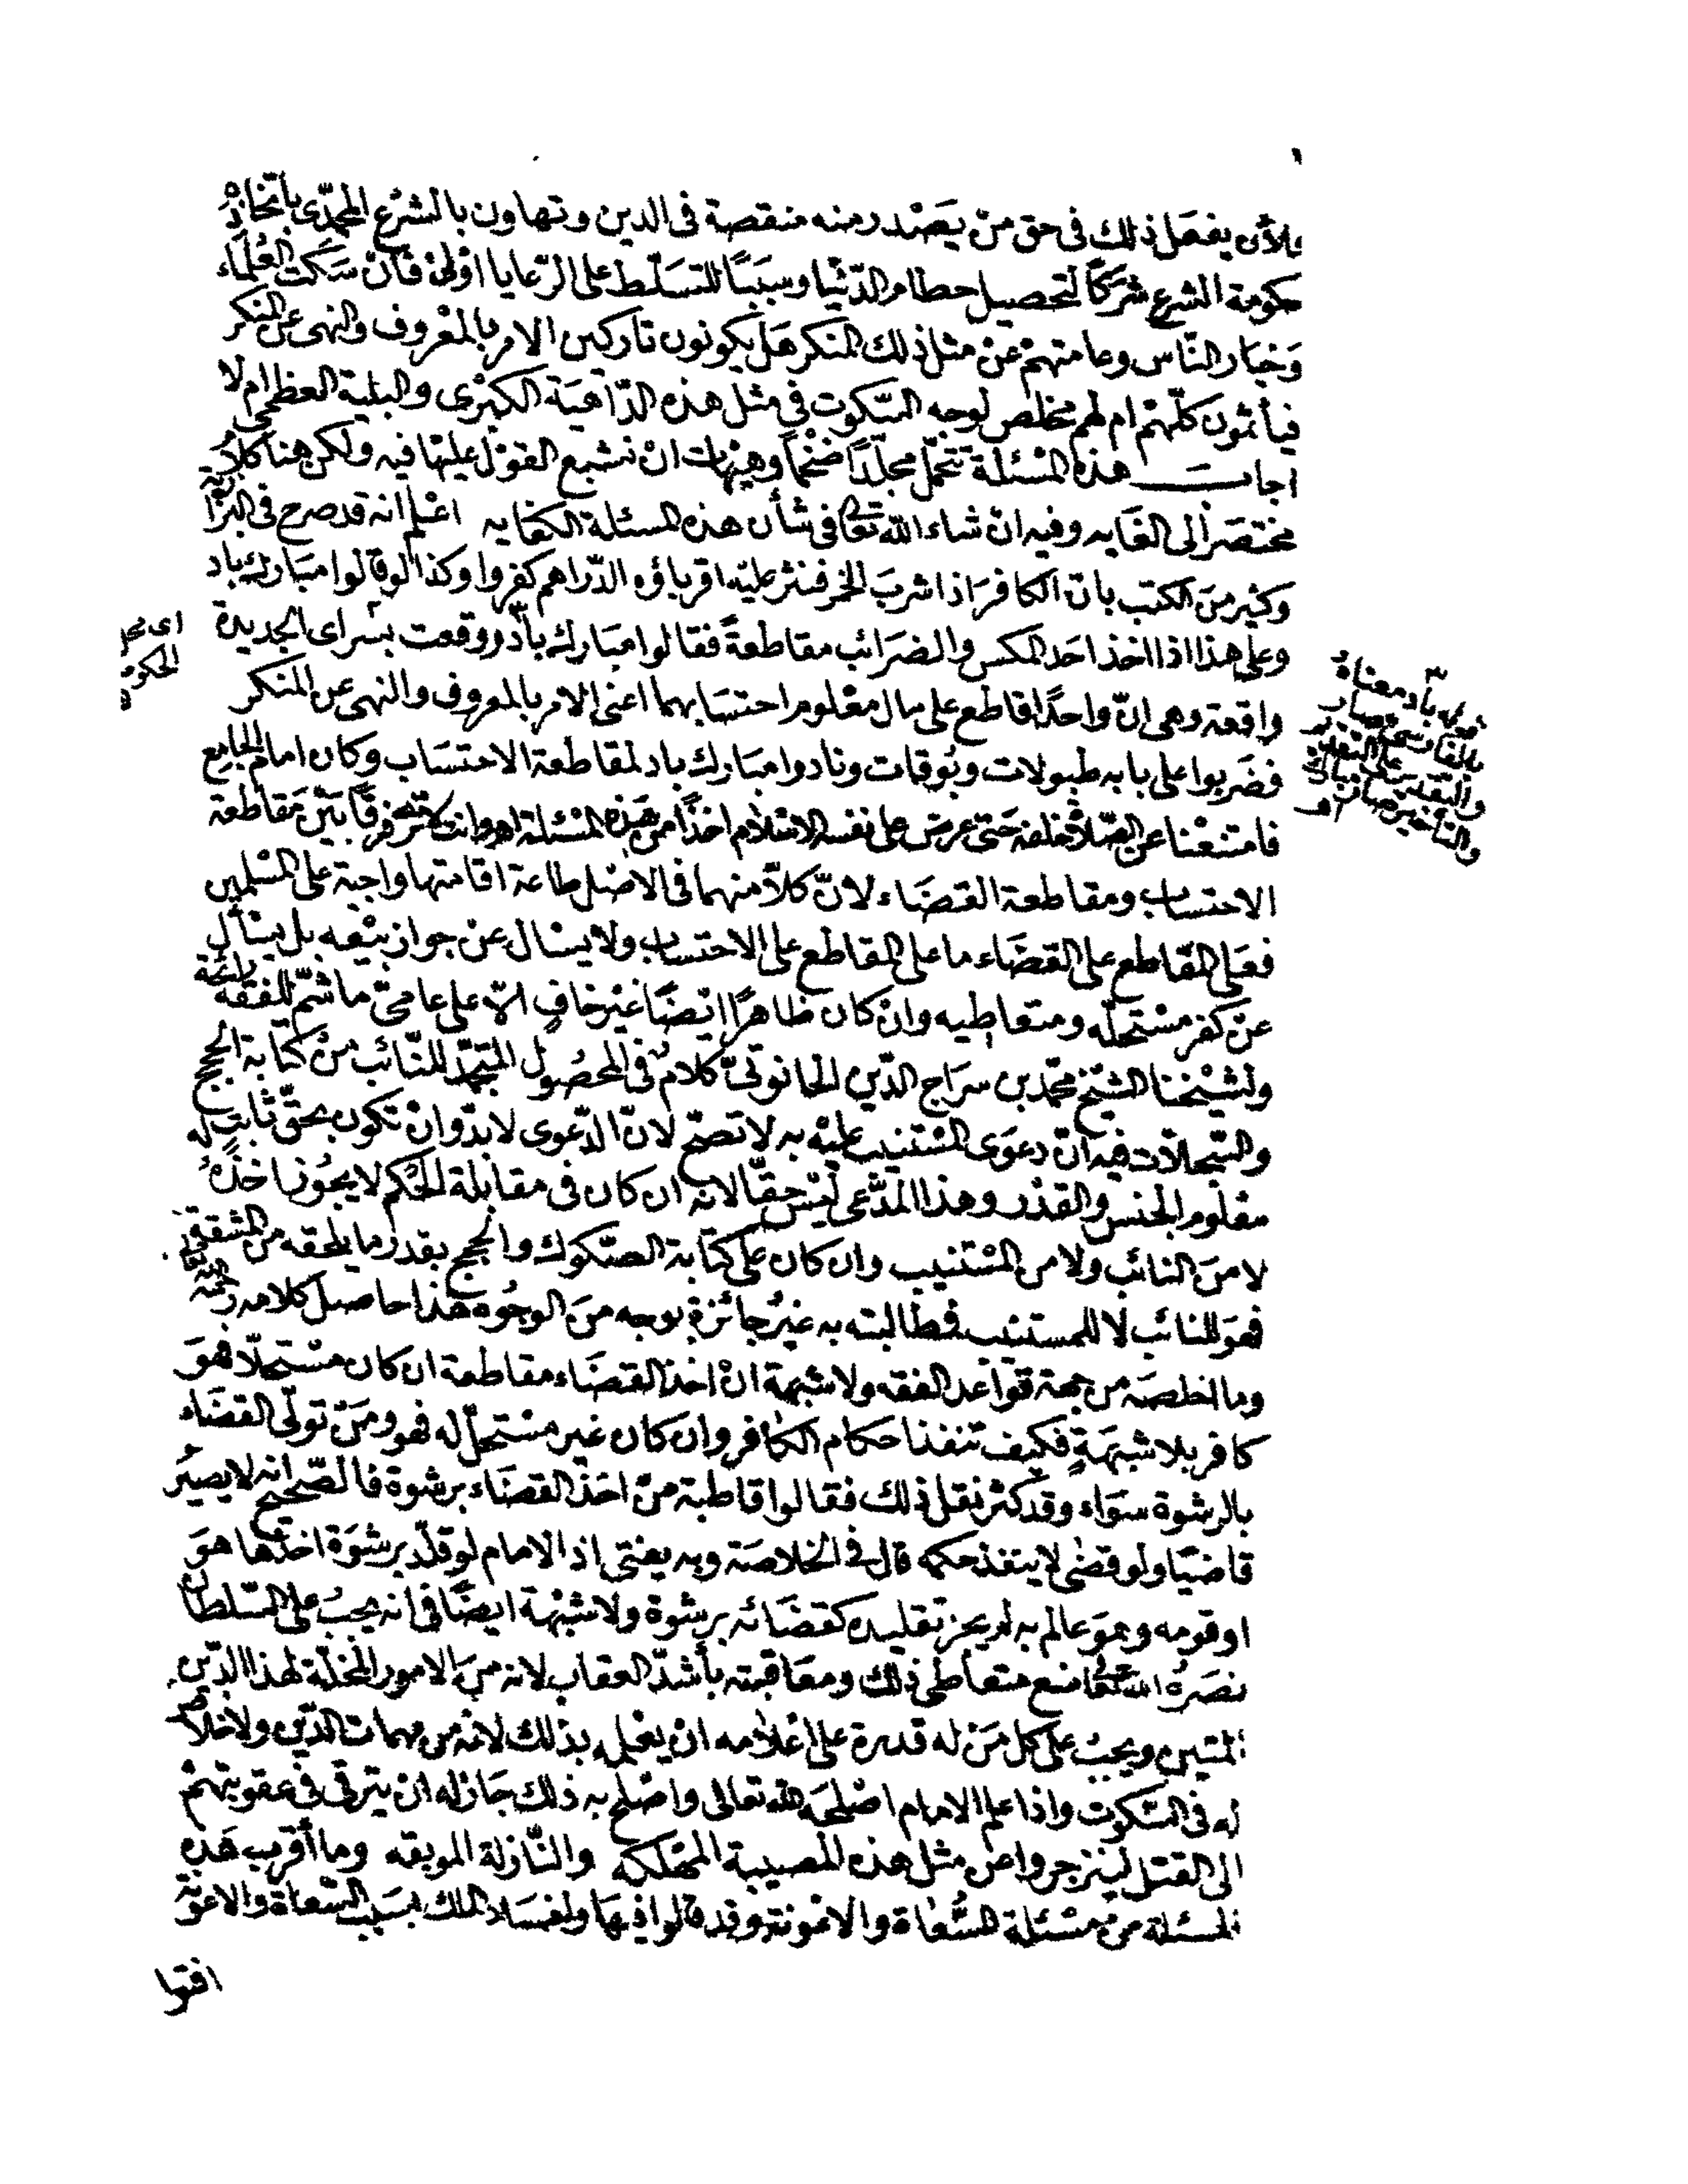 فلأن يفعل ذلك فى حق من يصدر منه منقصة فى الدين وتهاون بالشرع المحمّدى باتخاذه
حكومة الشرع شركًا لتحصيل حطام الدّنيا وسببًا للتسلّط على الرّعايا اولى فان سكت العلماء
وخيار النّاس وعامتهم عن مثل ذلك المنكر هل يكونون تاركين الامر بالمعروف والنهى عن المنكر
فيأثمون كلّهم ام لهم مخلص لوجه السّكوت فى مثل هذه الدّاهية الكبرى والبلية العظمى ام لا
اجاب هذه المسئلة تتحمّل مجلّدًا ضخمًا وهيهات ان نشبع القول عليها فيه ولكن هنا كلام
مختصر الى الغايه وفيه ان شاء الله تعالى فى شأن هذه المسئلة الكفايه اعلم انه قد صرح فى البزازية
وكثير من الكتب بان الكافر اذا شرب الخمر فنثر عليه اقرباؤه الدّراهم كفروا وكذا لو قالوا مبارك باد
وعلى هذا اذا اخذ احد المكس والضرائب مقاطعةً فقالوا مبارك باد ووقعت بسراى الجديدة
واقعة وهى انّ واحدًا قاطع على مال معلوم احتسابهما اعنى الامر بالمعروف والنهى عن المنكر
فضربوا على بابه طبولات وبوقات ونادوا مبارك باد لمقاطعة الاحتساب وكان امام الجامع
فامتنعنا عن الصّلاة خلفه حتى عرض على نفسه الاسلام اخذًا من هذه المسئلة اهـ وانت لا ترى فرقًا بين مقاطعة
الاحتساب ومقاطعة القضاء لانّ كلاًّ منهما فى الاصل طاعة اقامتها واجبة على المسلمين
فعلى المقاطع على القضاء ما على المقاطع على الاحتساب ولا يسئال عن جواز بيعه بل يسئال
عن كفر مستحلّه ومتعاطيه وان كان ظاهرًا ايضًا غير خافٍ الاّ على عامىّ ما شمّ للفقه رائحة
ولشيخنا الشيخ محمّد بن سراج الدّين الحانوتىّ كلامٌ فى المحصول المتجمّد للنّائب من كتابة الحجج
والسّجلاّت فيه انّ دعوى المستنيب عليه به لا تصحّ لانّ الدّعوى لا بدّ وان تكون بحقّ ثابت له
معلوم الجنس والقدر وهذا المدّعى ليس حقًّا لانه ان كان فى مقابلة الحكم لا يجوز اخذه
لا من النائب ولا من المستنيب وان كان على كتابة الصّكوك والحجج بقدر ما يلحقه من المشقة
فهو للنائب لا للمستنيب فمطالبته به غير جائزة بوجه من الوجوه هذا حاصل كلامه رحمه الله تعالى
وما الخلصه من جهة قواعد الفقه ولا شبهة ان اخذ القضاء مقاطعة ان كان مستحلاًّ فهو
كافر بلا شبهةٍ فكيف تنفذ احكام الكافر وان كان غير مستحلّ له فهو ومن تولّى القضاء
بالرشوة سواء وقد كثر نقل ذلك فقالوا قاطبة من اخذ القضاء برشوة فالصّحيح انه لا يصير
قاضيًا ولو قضى لا ينفذ حكمه قال فى الخلاصة وبه يفتى اذ الامام لو قلّد برشوة اخذها هو
او قومه وهو عالم به لم يجز تقليده كقضائه برشوة ولا شبهة ايضًا فى انه يجب على السّلطان
نصره الله تعالى منع متعاطى ذلك ومعاقبته بأشدّ العقاب لانه من الامور المخلّة لهذا الدّين
المتين ويجب على كل من له قدرة على اعلامه ان يعلمه بذلك لانه من مهمات الدّين ولا خلاص
له فى السّكوت واذا علم الامام اصلحه الله تعالى واصلح به ذلك جاز له ان يترقى فى عقوبتهم
الى القتل لينزجروا عن مثل هذه المصيبة المهلكه والنّازلة الموبقه وما أقرب هذه
المسئلة من مسئلة السُّعاة والاعونة وقد قالوا فيها ولفساد الملك بسبب السّعاة والاعونة
افتوا
قوله باد معناه
اى محل